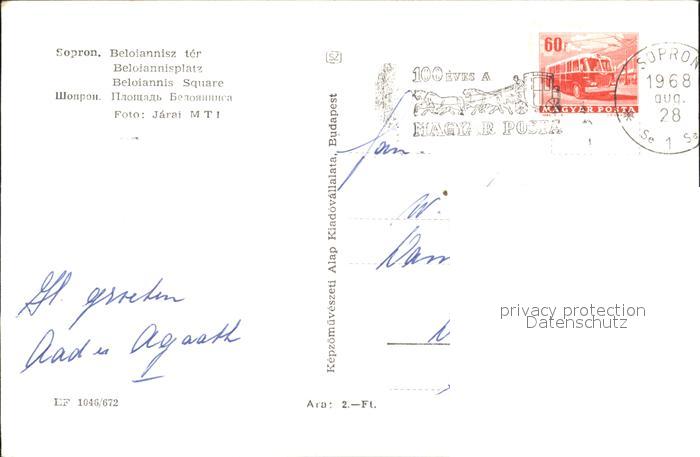 Sopron. Beloiannisz tér
Beloiannisplatz
Beloiannis Square
Шопрон. Площадь Белоянниса
Foto: Járai MTI
Képzőművészeti Alap Kiadóvállalata, Budapest
60f
MAGYAR POSTA
100 ÉVES A
MAGYAR POSTA
SOPRON
1968
aug.
28
1
Fam
W.
privacy protection
Datenschutz
Gr. groeten
Aad en Agaath
EF 1046/672
Ara: 2.—Ft.